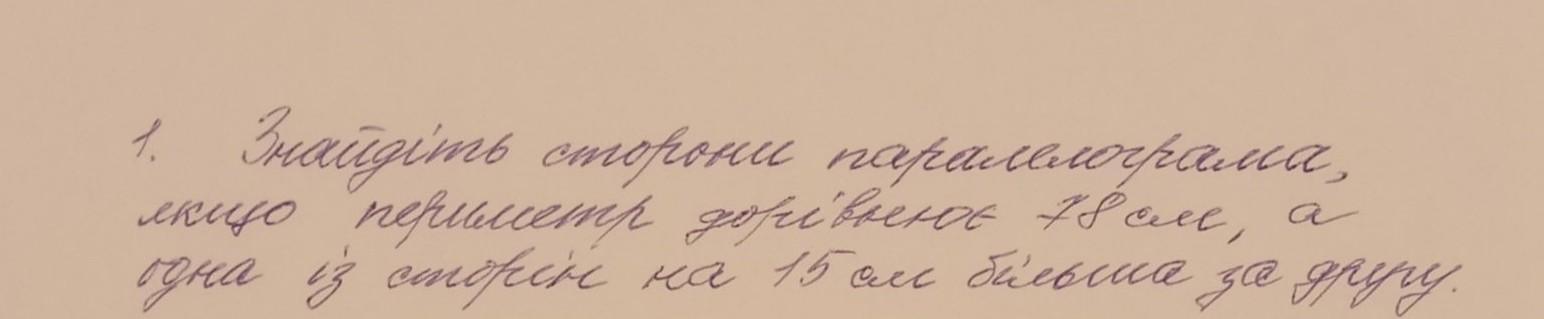 1. Знайдіть сторони паралелограма,
якщо периметр дорівнює 78 см, а
одна із сторін на 15 см більша за другу.